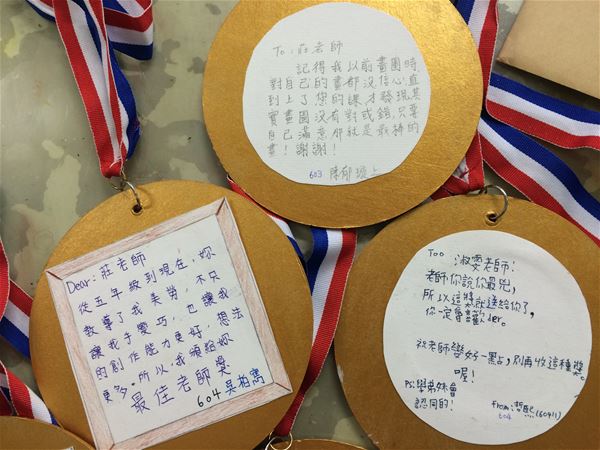 To:莊老師
記得我以前畫圖時
對自己的畫都沒信心,直
到上了您的課才發現其
實畫圖沒有對或錯,只要
自己滿意那就是最棒的
畫!謝謝!
603 陳郁璇上
Dear:莊老師
從五年級到現在,妳
教導了我美勞,不只
讓我手變巧,也讓我
的創作能力更好,想法
更多。所以,我頒給妳
最佳老師獎
604 吳柏寯
Too 淑雯老師!
老師你說你最兇,
所以這獎就送給你了,
你一定會喜歡der。
祝老師變好一點,別再收這種獎
喔!
PS:學弟妹會
認同的!
From:哲熙(60411)
604